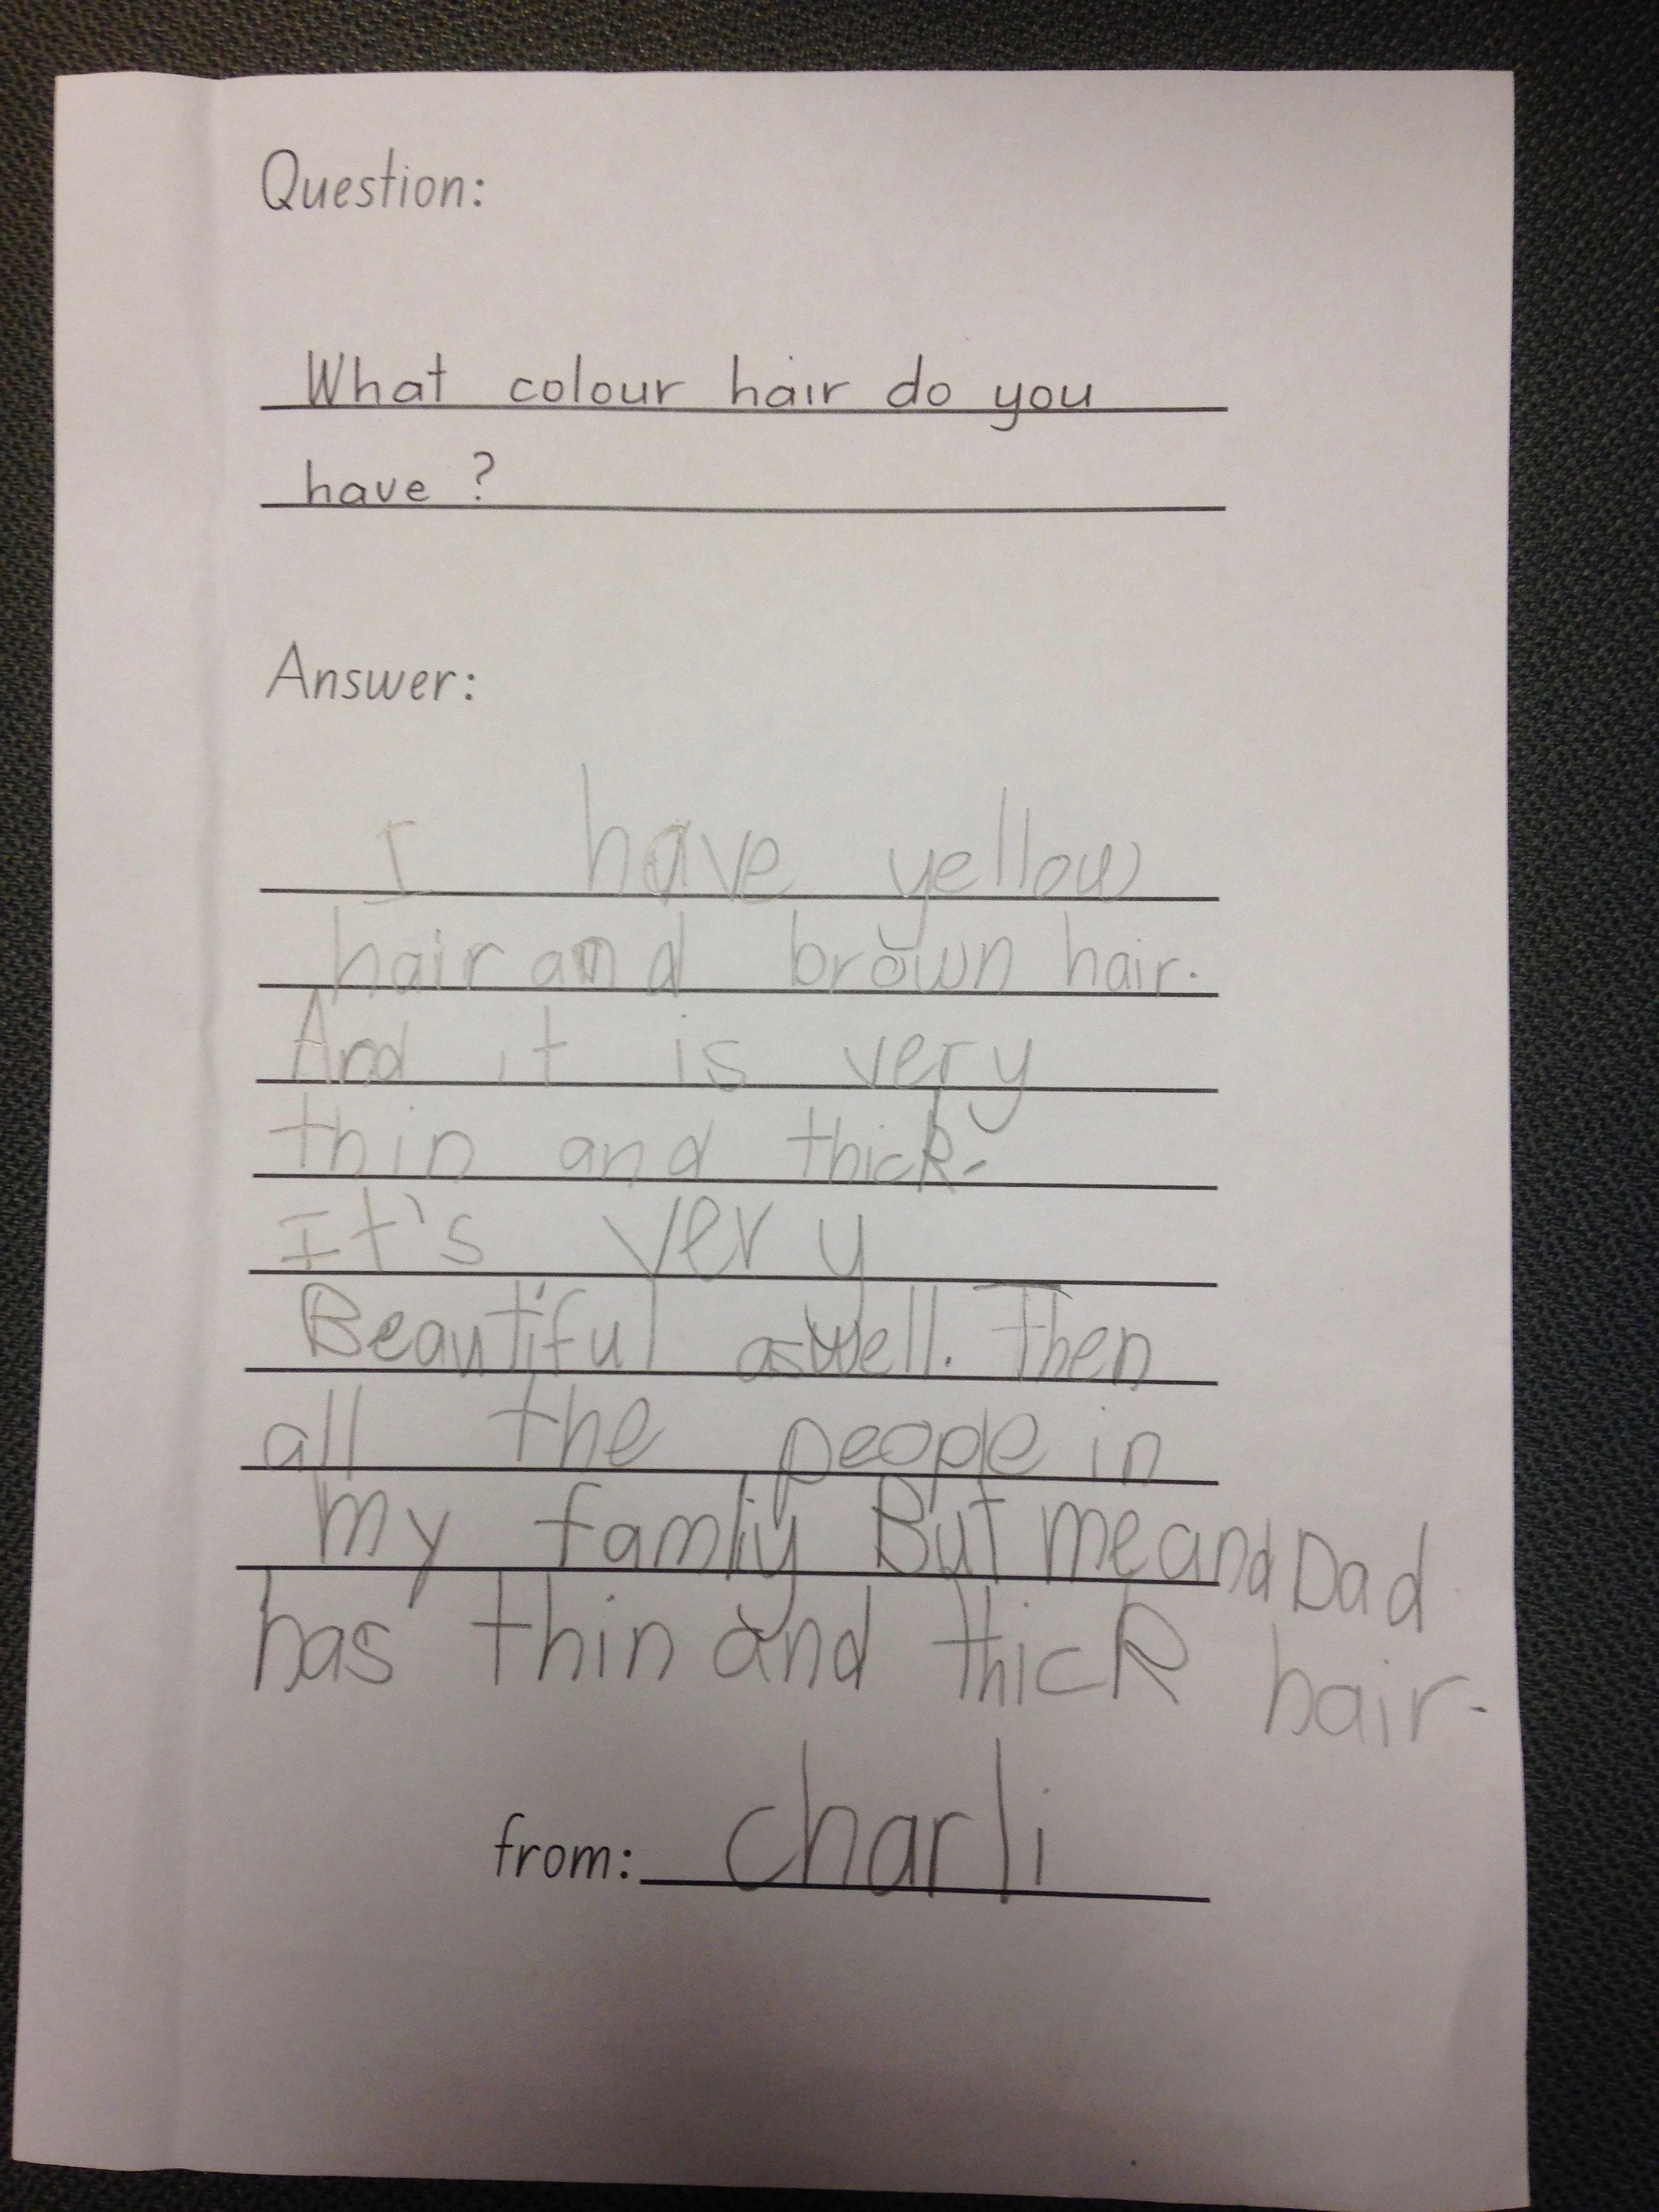 Question:
What colour hair do you
have ?
Answer:
I have yellow
hair and brown hair.
And it is very
thin and thick.
It's very
Beautiful aswell. Then
all the people in
my famliy But me and Dad
has thin and thick hair.
from: charli